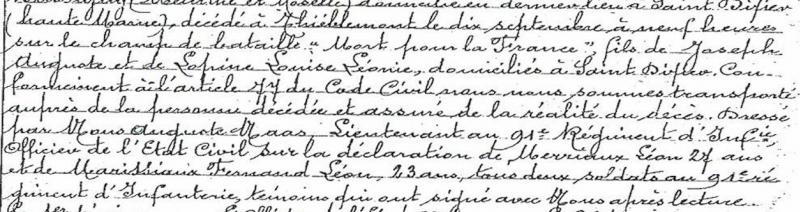 (Meurthe et Moselle) domicilié en dernier lieu à Saint Dizier
(haute Marne), décédé à Thiéblemont le dix septembre à neuf heures
sur le champ de bataille "Mort pour la France", fils de Joseph
Auguste et de Lepine Louise Léonie, domiciliés à Saint Dizier. Con-
formément à l'article 77 du Code Civil nous nous sommes transporté
auprès de la personne décédée et assuré de la réalité du décès. Dressé
par Nous Auguste Maas, Lieutenant au 91e Régiment d'Inf.ie,
Officier de l'Etat Civil sur la déclaration de Merriaux Léon 27 ans
et de Marissiaux Fernand Léon, 23 ans, tous deux soldats au 91e ré
giment d'Infanterie, témoins qui ont signé avec Nous après lecture.